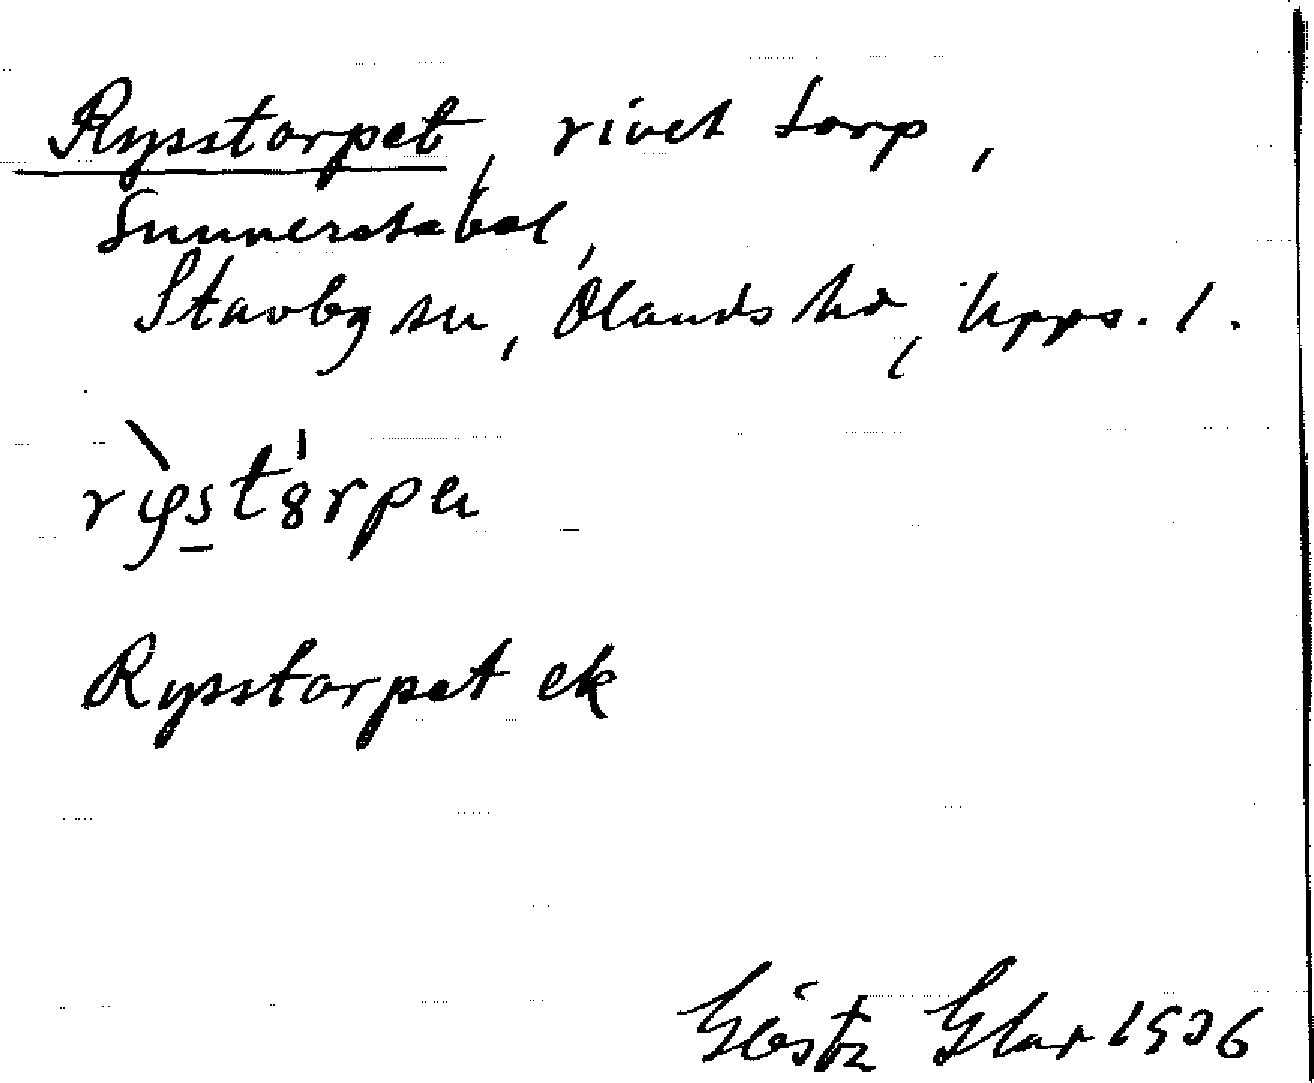 Rysstorpet, rivet torp,
Sunnerstabol,
Stavby sn, Ölands hd, Upps. l.
Rysstorpet ek
Gösta 1936